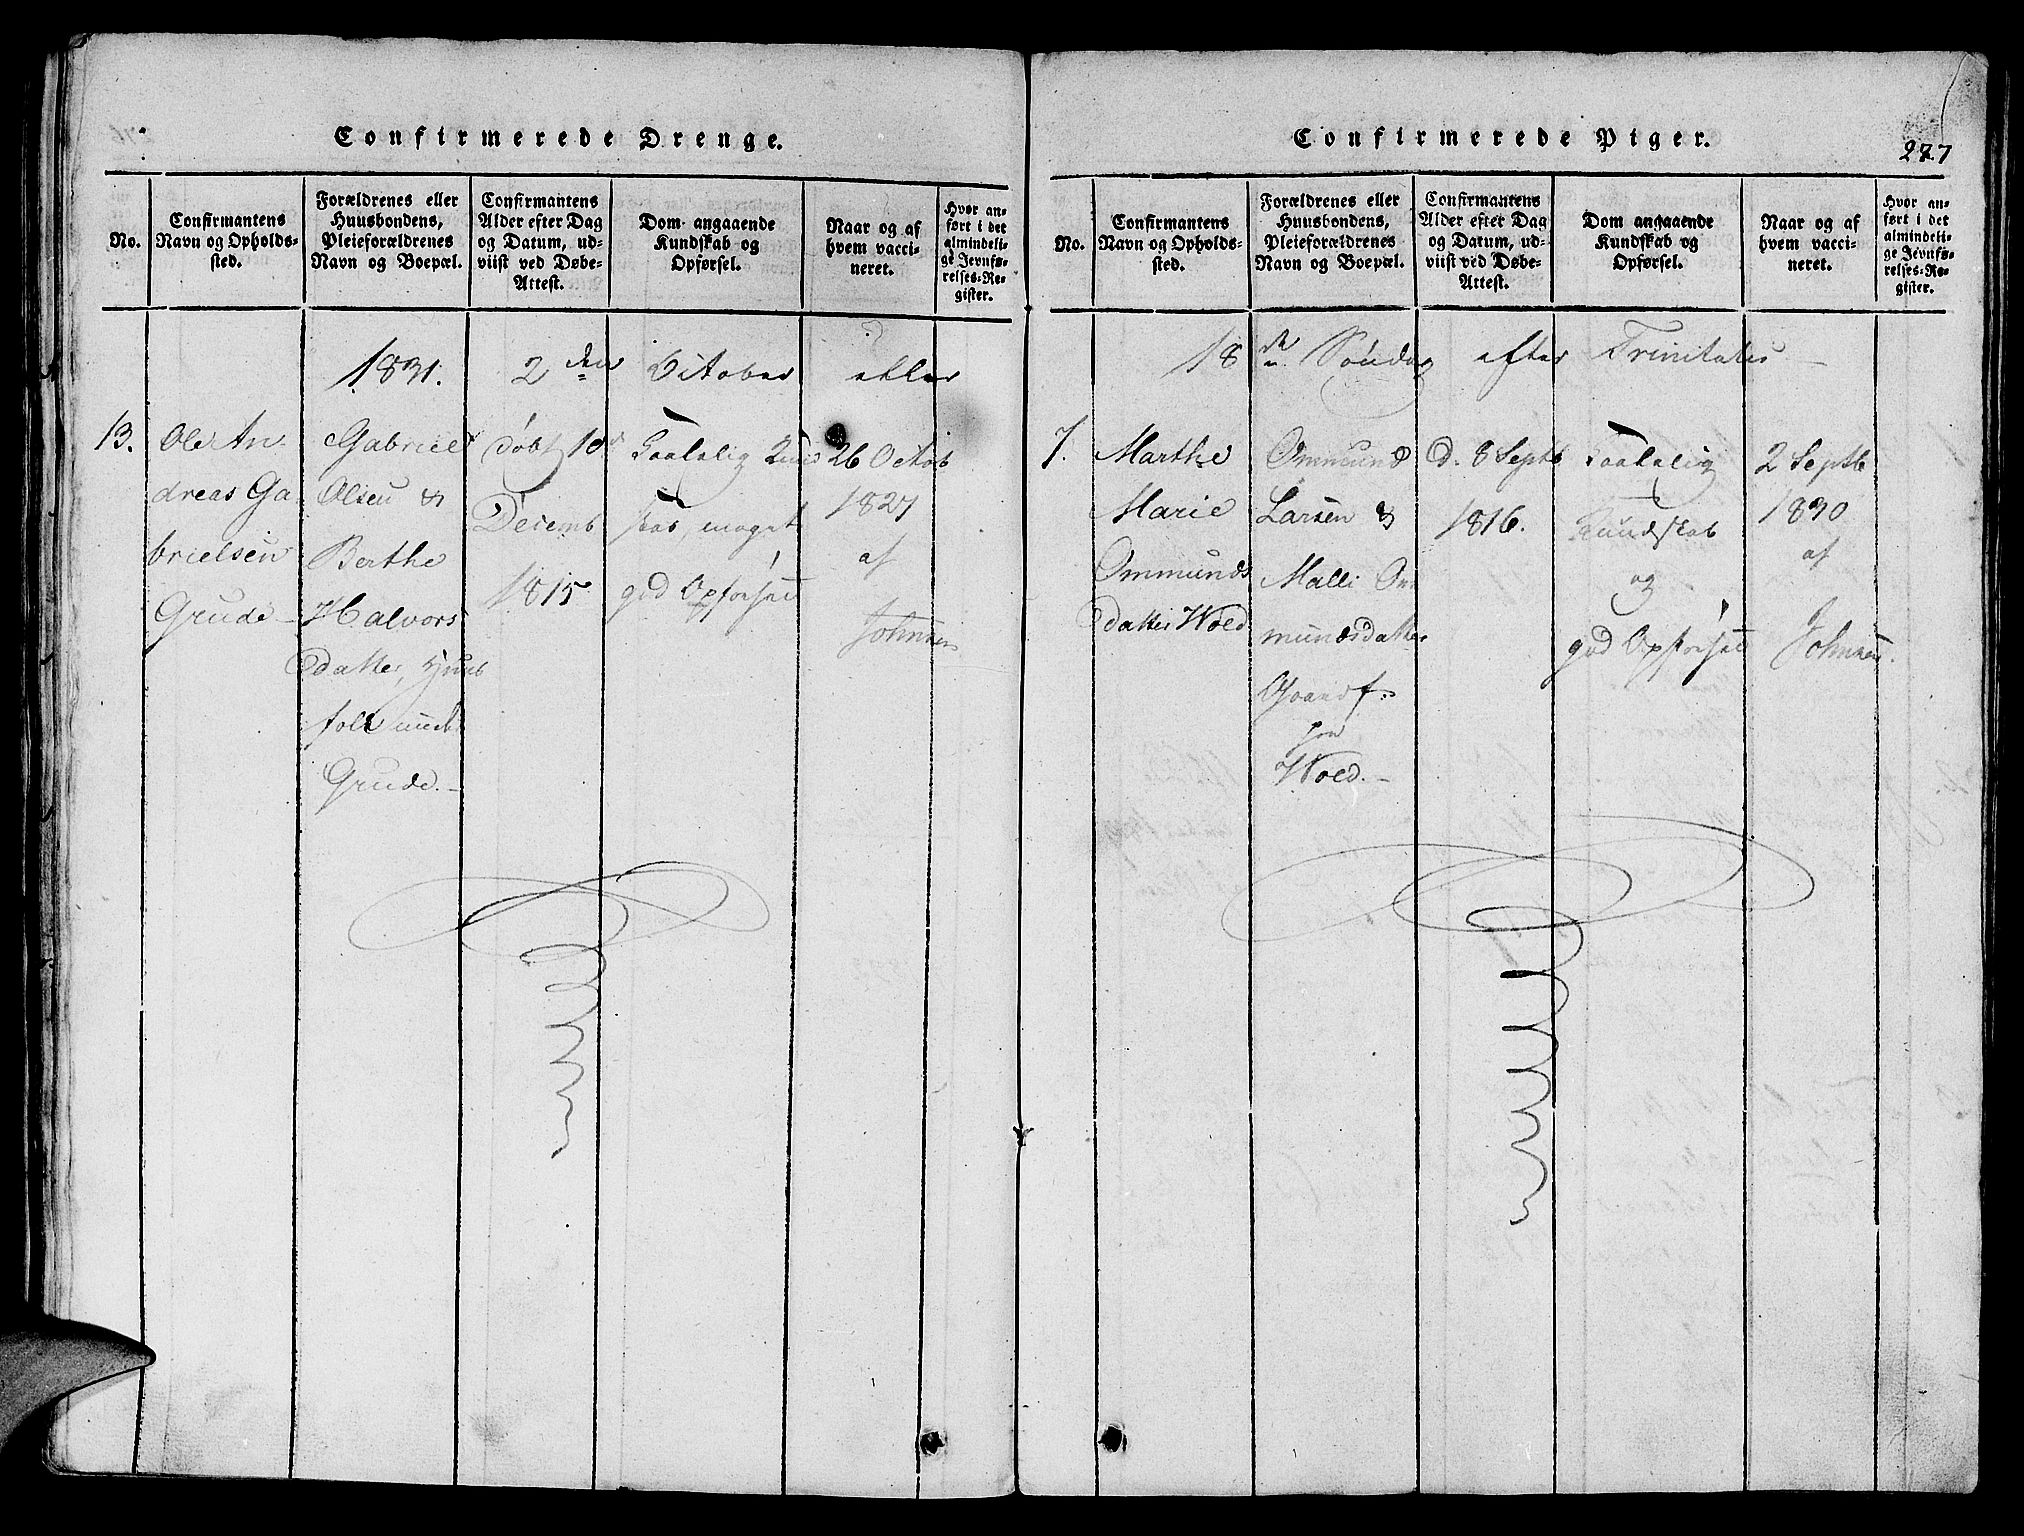 Confirmerede Drenge.
No.
Confirmantens
Navn og Opholds-
sted.
Forældrenes eller
Huusbondens,
Pleieforældrenes
Navn og Boepæl.
Confirmantens
Alder efter Dag
og Datum, ud-
viist ved Døbe-
Attest.
Dom angaaende
Kundskab og
Opførsel.
Naar og af
hvem vacci-
neret.
Hvor an-
ført i det
almindeli-
ge Jevnfø-
relses-Re-
gister.
1831. 2den October eller
13.
Ole An
dreas Ga
brielsen
Grude
Gabriel
Olsen &
Berthe
Halvors
datter, Huus
folk
Grude.
døbt 10d
Decemb
1815
Taalelig Kund
skab, meget
god Opførsel
26 Octob
1827
af
Johnsen
Confirmerede Piger.
277
No.
Confirmantens
Navn og Opholds-
sted.
Forældrenes eller
Huusbondens,
Pleieforældrenes
Navn og Boepæl.
Confirmantens
Alder efter Dag
og Datum, ud-
viist ved Døbe-
Attest.
Dom angaaende
Kundskab og
Opførsel.
Naar og af
hvem vacci-
neret.
Hvor an-
ført i det
almindeli-
ge Jevnfø-
relses-Re-
gister.
18de Søndag efter Trinitatis
7.
Marthe
Marie
Ommunds
datter Wold
Ommund
Larsen &
Malli Om
mundsdatter
Wold.
d. 8 Septb
1816.
Taalelig
Kundskab
og
god Opførsel
2 Septb
1830
af
Johnsen.